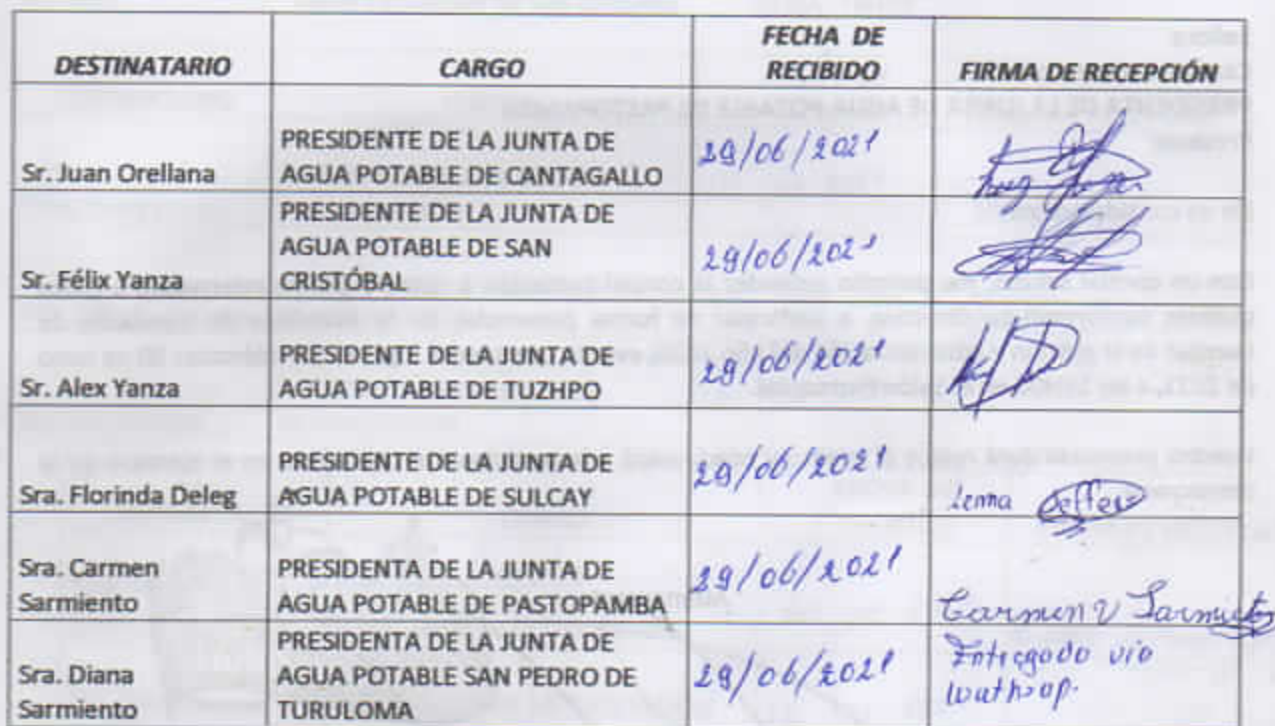 DESTINATARIO CARGO FECHA DE RECIBIDO FIRMA DE RECEPCIÓN
Sr. Juan Orellana PRESIDENTE DE LA JUNTA DE AGUA POTABLE DE CANTAGALLO 29/06/2021
Sr. Félix Yanza PRESIDENTE DE LA JUNTA DE AGUA POTABLE DE SAN CRISTÓBAL 29/06/2021
Sr. Alex Yanza PRESIDENTE DE LA JUNTA DE AGUA POTABLE DE TUZHPO 29/06/2021
Sra. Florinda Deleg PRESIDENTE DE LA JUNTA DE AGUA POTABLE DE SULCAY 29/06/2021
Sra. Carmen Sarmiento PRESIDENTA DE LA JUNTA DE AGUA POTABLE DE PASTOPAMBA 29/06/2021 Carmen V Sarmiento
Sra. Diana Sarmiento PRESIDENTA DE LA JUNTA DE AGUA POTABLE SAN PEDRO DE TURULOMA 29/06/2021 Entregado via wathsap.